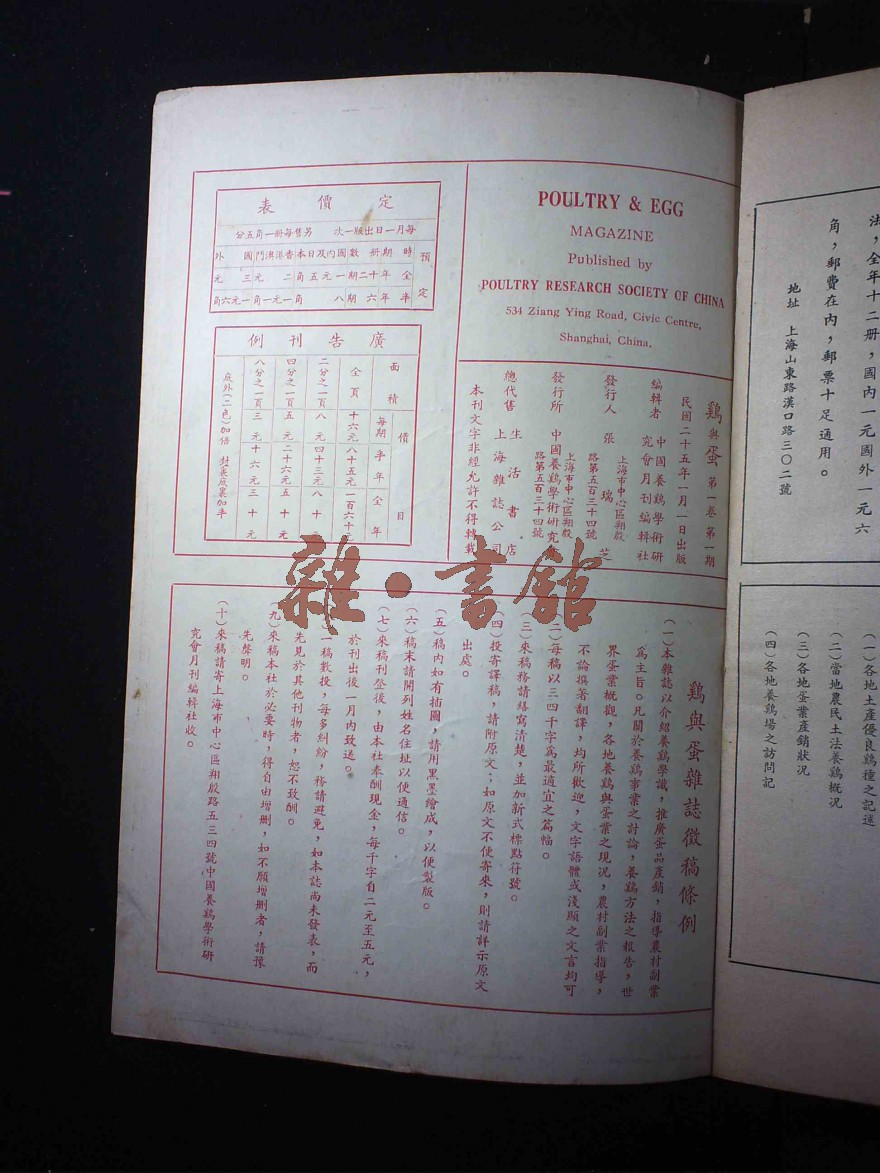 POULTRY & EGG
MAGAZINE
Published by
POULTRY RESEARCH SOCIETY OF CHINA
534 Ziang Ying Road, Civic Centre,
Shanghai, China.
鷄與蛋 第一卷 第一期
民國二十五年一月一日出版
編輯者 中國養鷄學術研
究會月刊編輯社
上海市中心區翔殷
路第五百三十四號
發行人 張瑞芝
發行所 中國養鷄學術研究
上海市中心區翔殷
路第五百三十四號
總代售 生活書店
上海雜誌公司
本刊文字非經允許不得轉載
定價表
每月一日出版一次 另售每册一角五分
預定
時期 册數 國內及日本 香港澳門 國外
全年 十二期 一元五角 二元 三元
半年 六期 八角 一元一角 一元六角
廣告刊例
面積 價目
每期 半年 全年
全頁 十六元 八十五元 一百六十元
二分之一頁 八元 四十三元 八十元
四分之一頁 五元 二十六元 五十元
八分之一頁 三元 十六元 三十元
底外(二色)加倍 封裏底裏加半
鷄與蛋雜誌徵稿條例
(一)本雜誌以介紹養鷄學識,推廣蛋品產銷,指導農村副業
爲主旨。凡關於養鷄事業之討論,養鷄方法之報告,世
界蛋業概觀,各地養鷄與蛋業之現況,農村副業指導,
不論撰著翻譯,均所歡迎,文字語體或淺顯之文言均可
(二)每稿以三四千字爲最適宜之篇幅。
(三)來稿務請繕寫清楚,並加新式標點符號。
(四)投寄譯稿,請附原文;如原文不便寄來,則請詳示原文
出處。
(五)稿內如有插圖,請用黑墨繪成,以便製版。
(六)稿末請開列姓名住址以便通信。
(七)來稿刊登後,由本社奉酬現金,每千字自二元至五元,
於刊出後一月內致送。
一稿數投,每多糾紛,務請避免,如本誌尚未發表,而
先見於其他刊物者,恕不致酬。
(九)來稿本社於必要時,得自由增刪,如不願增刪者,請豫
先聲明。
(十)來稿請寄上海市中心區翔殷路五三四號中國養鷄學術研
究會月刊編輯社收。
雜·書館
法,全年十二册,國內一元國外一元六
角,郵費在內,郵票十足通用。
地址 上海山東路漢口路三〇二號
(一)各地土產優良鷄種之記述
(二)當地農民土法養鷄概況
(三)各地蛋業產銷狀況
(四)各地養鷄場之訪問記